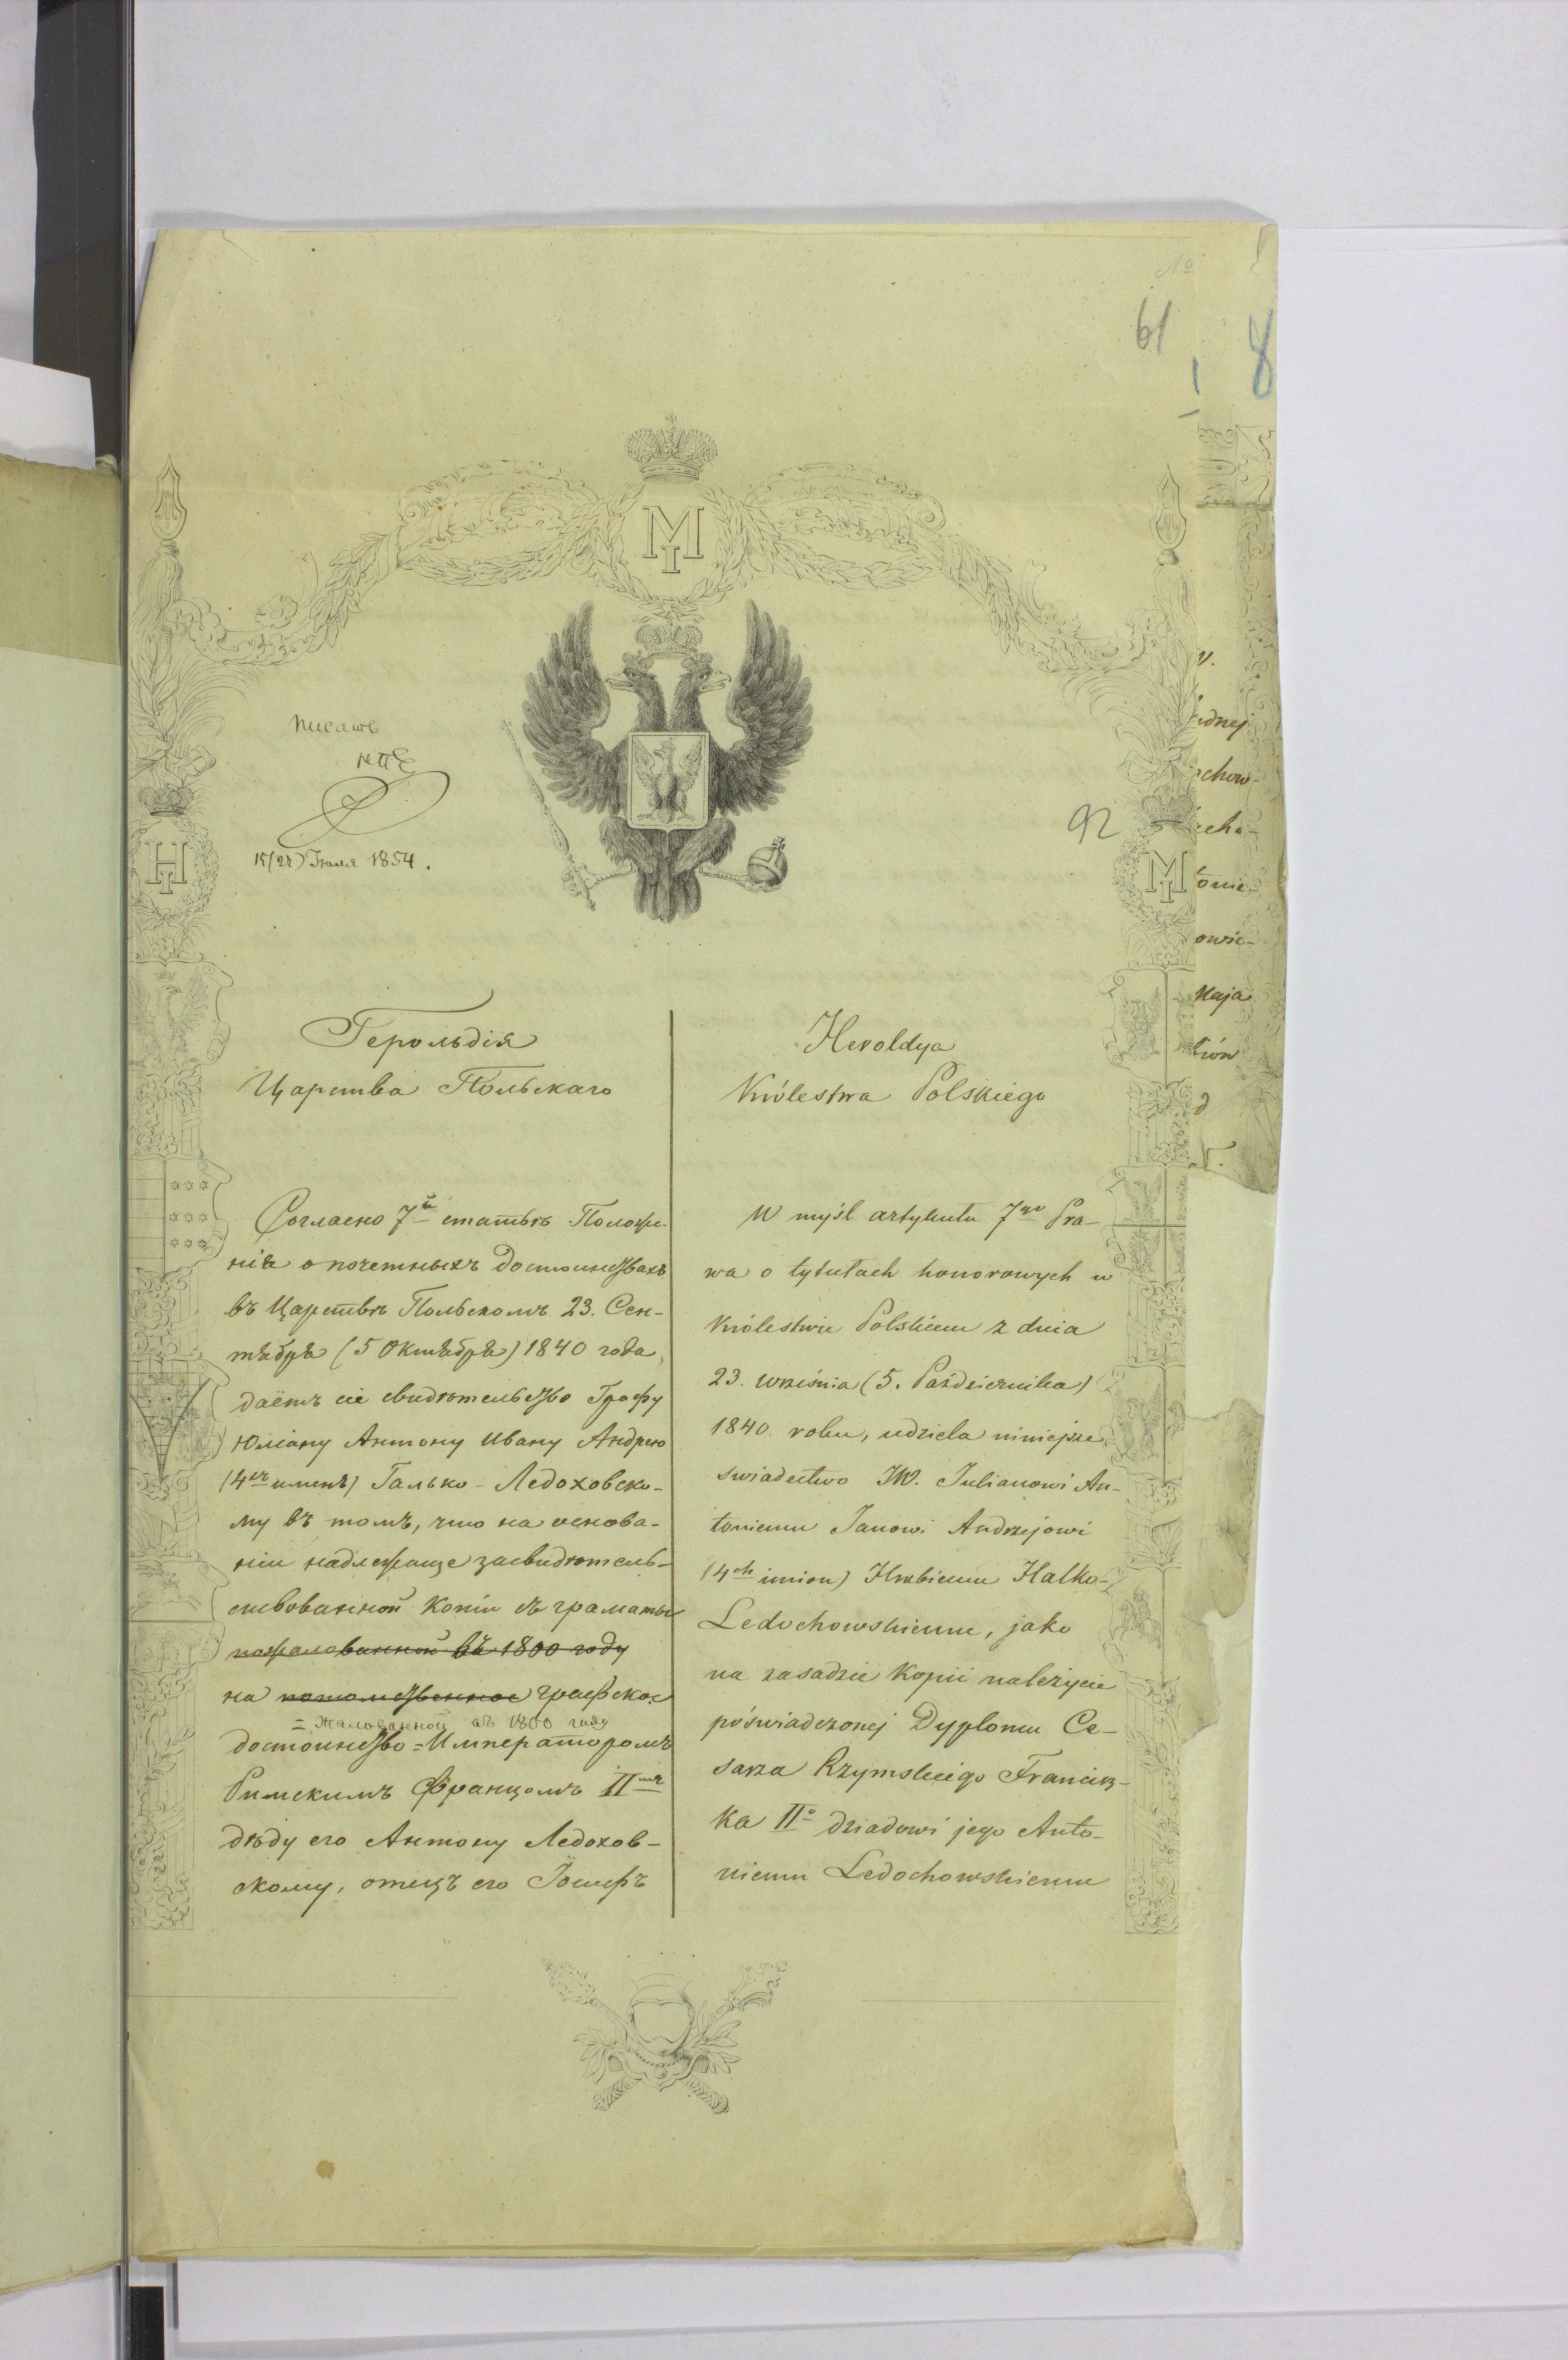 №
61
8
писать
15(27) Іюля 1854.
92
Герольдія
Царства Польскаго
Согласно 7й статьѣ Положе-
нія о почетныхъ достоинствахъ
въ Царствѣ Польскомъ 23. Сен-
тября (5 Октября) 1840 года,
даётъ сіе свидѣтельство Графу
Юліану Антону Ивану Андрею
(4хъ именъ) Галько-Ледоховско-
му въ томъ, что на основа-
ніи надлежаще засвидѣтель-
ствованной копіи съ граматы
пожалованной въ 1800 году
на потомственное графское
= жалованной въ 1800 году
достоинство = Императоромъ
Римскимъ Францомъ IIмъ
дѣду его Антону Ледохов-
скому, отецъ его Іосифъ
Heroldya
Królestwa Polskiego
W myśl artykułu 7go Pra-
wa o tytułach honorowych w
Królestwie Polskiem z dnia
23. września (5. Października)
1840 roku, udziela niniejsze
swiadectwo JW. Julianowi An-
toniemu Janowi Andrzejowi
(4ch imion) Hrabiemu Halko-
Ledochowskiemu, jako
na zasadzie Kopii należycie
póswiadczonej Dyplomu Ce-
sarza Rzymskiego Francisz-
ka IIo dziadowi jego Anto-
niemu Ledochowskiemu